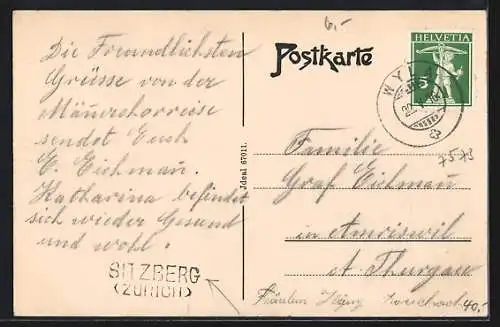 6.-
Die Freundlichsten
Grüsse von der
Mänerchorreise
sendet Euch
E. Eichman.
Katharina befindet
sich wieder Gesund
und wohl.
SITZBERG
(ZÜRICH)
Jdeal 67011.
Postkarte
HELVETIA
5
WYL
7573
Familie
Graf Eichman
in Amriswil
Kt. Thurgau
Fräulein
40,-